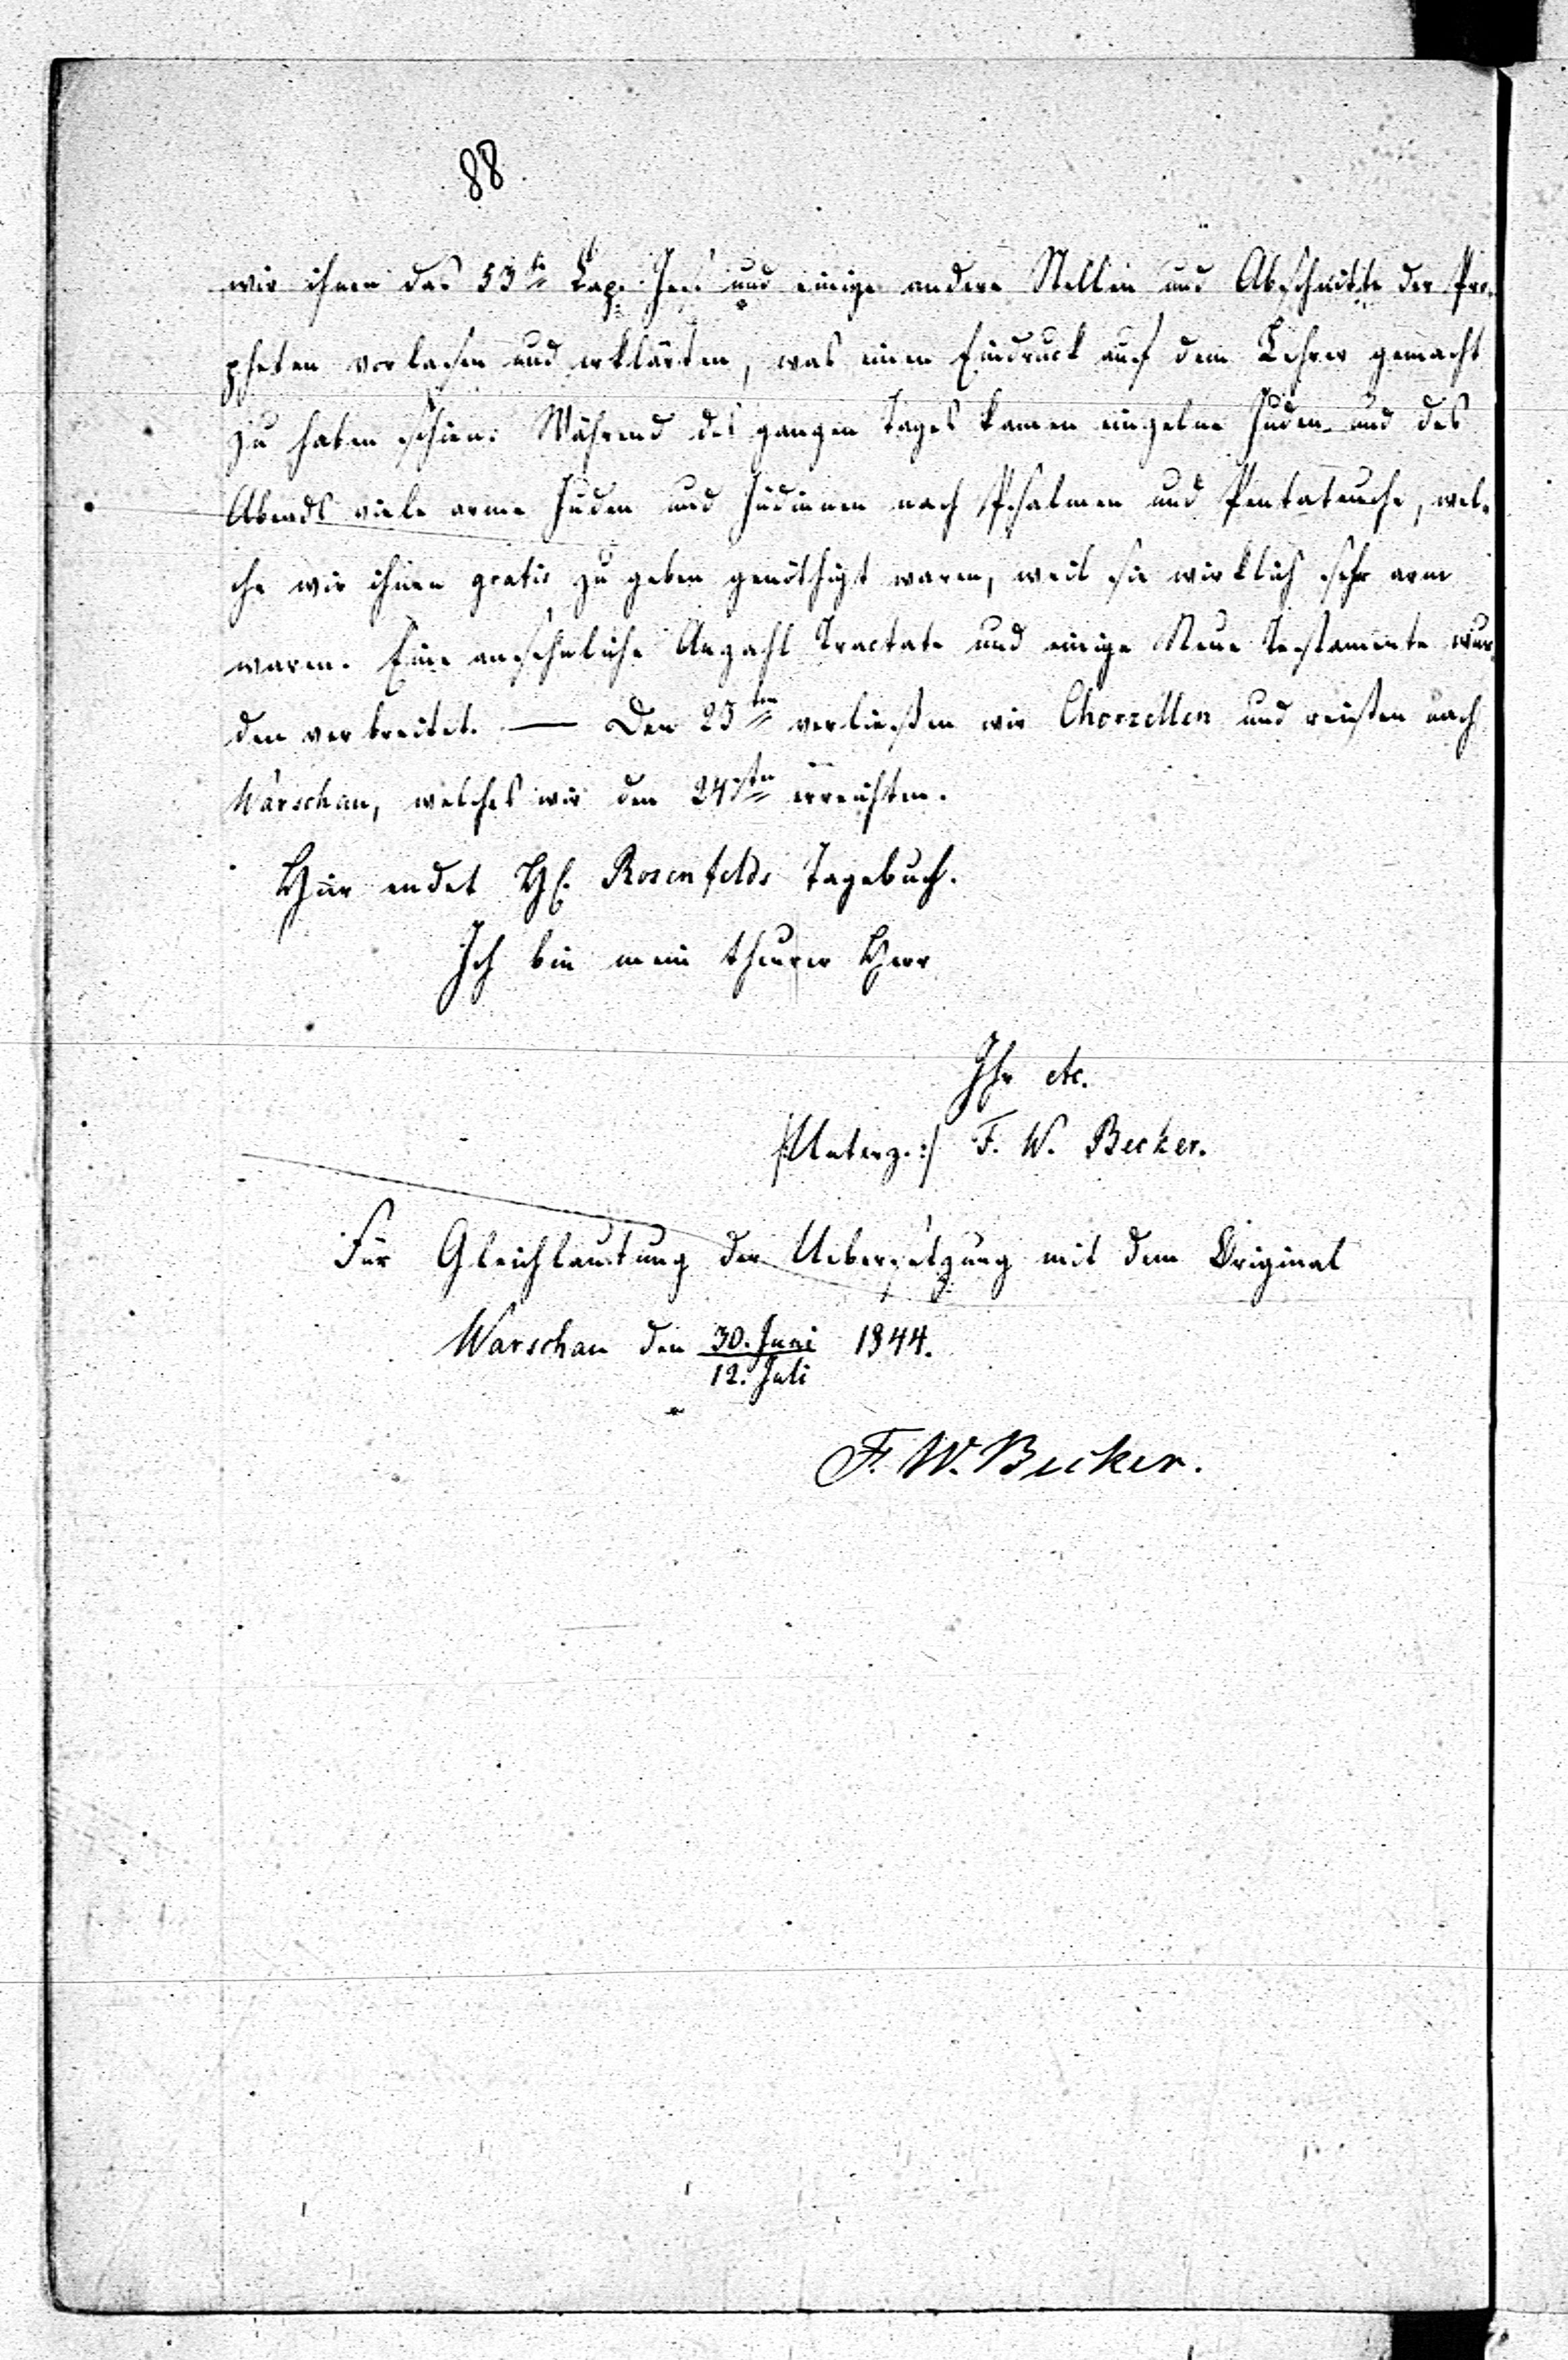 88
wir ihnen das 53te Cap. Jes. und einige andere Stellen und Abschnitte der Pro-
pheten vorlasen und erklärten, was einen Eindruck auf dem Lehrer gemacht
zu haben schien. Während des ganzen Tages kamen einzelne Juden und des
Abends viele arme Juden und Jüdinnen nach Psalmen und Pentateuche, wel-
che wir ihnen gratis zu geben genöthigt waren, weil sie wirklich sehr arm
waren. Eine ansehnliche Anzahl Tractate und einige Neue Testamente wur-
den verbreitet. — Den 23ten verließen wir Chorzellen und reisten nach
Warschau, welches wir den 24sten erreichten.
Hier endet H. Rosenfelds Tagebuch.
Ich bin mein theurer Herr
Ihr etc.
/:Unterz.:/ F. W. Becker.
Für Gleichlautung der Uebersetzung mit dem Original
Warschau den 30. Juni / 12. Juli 1844.
F. W. Becker.